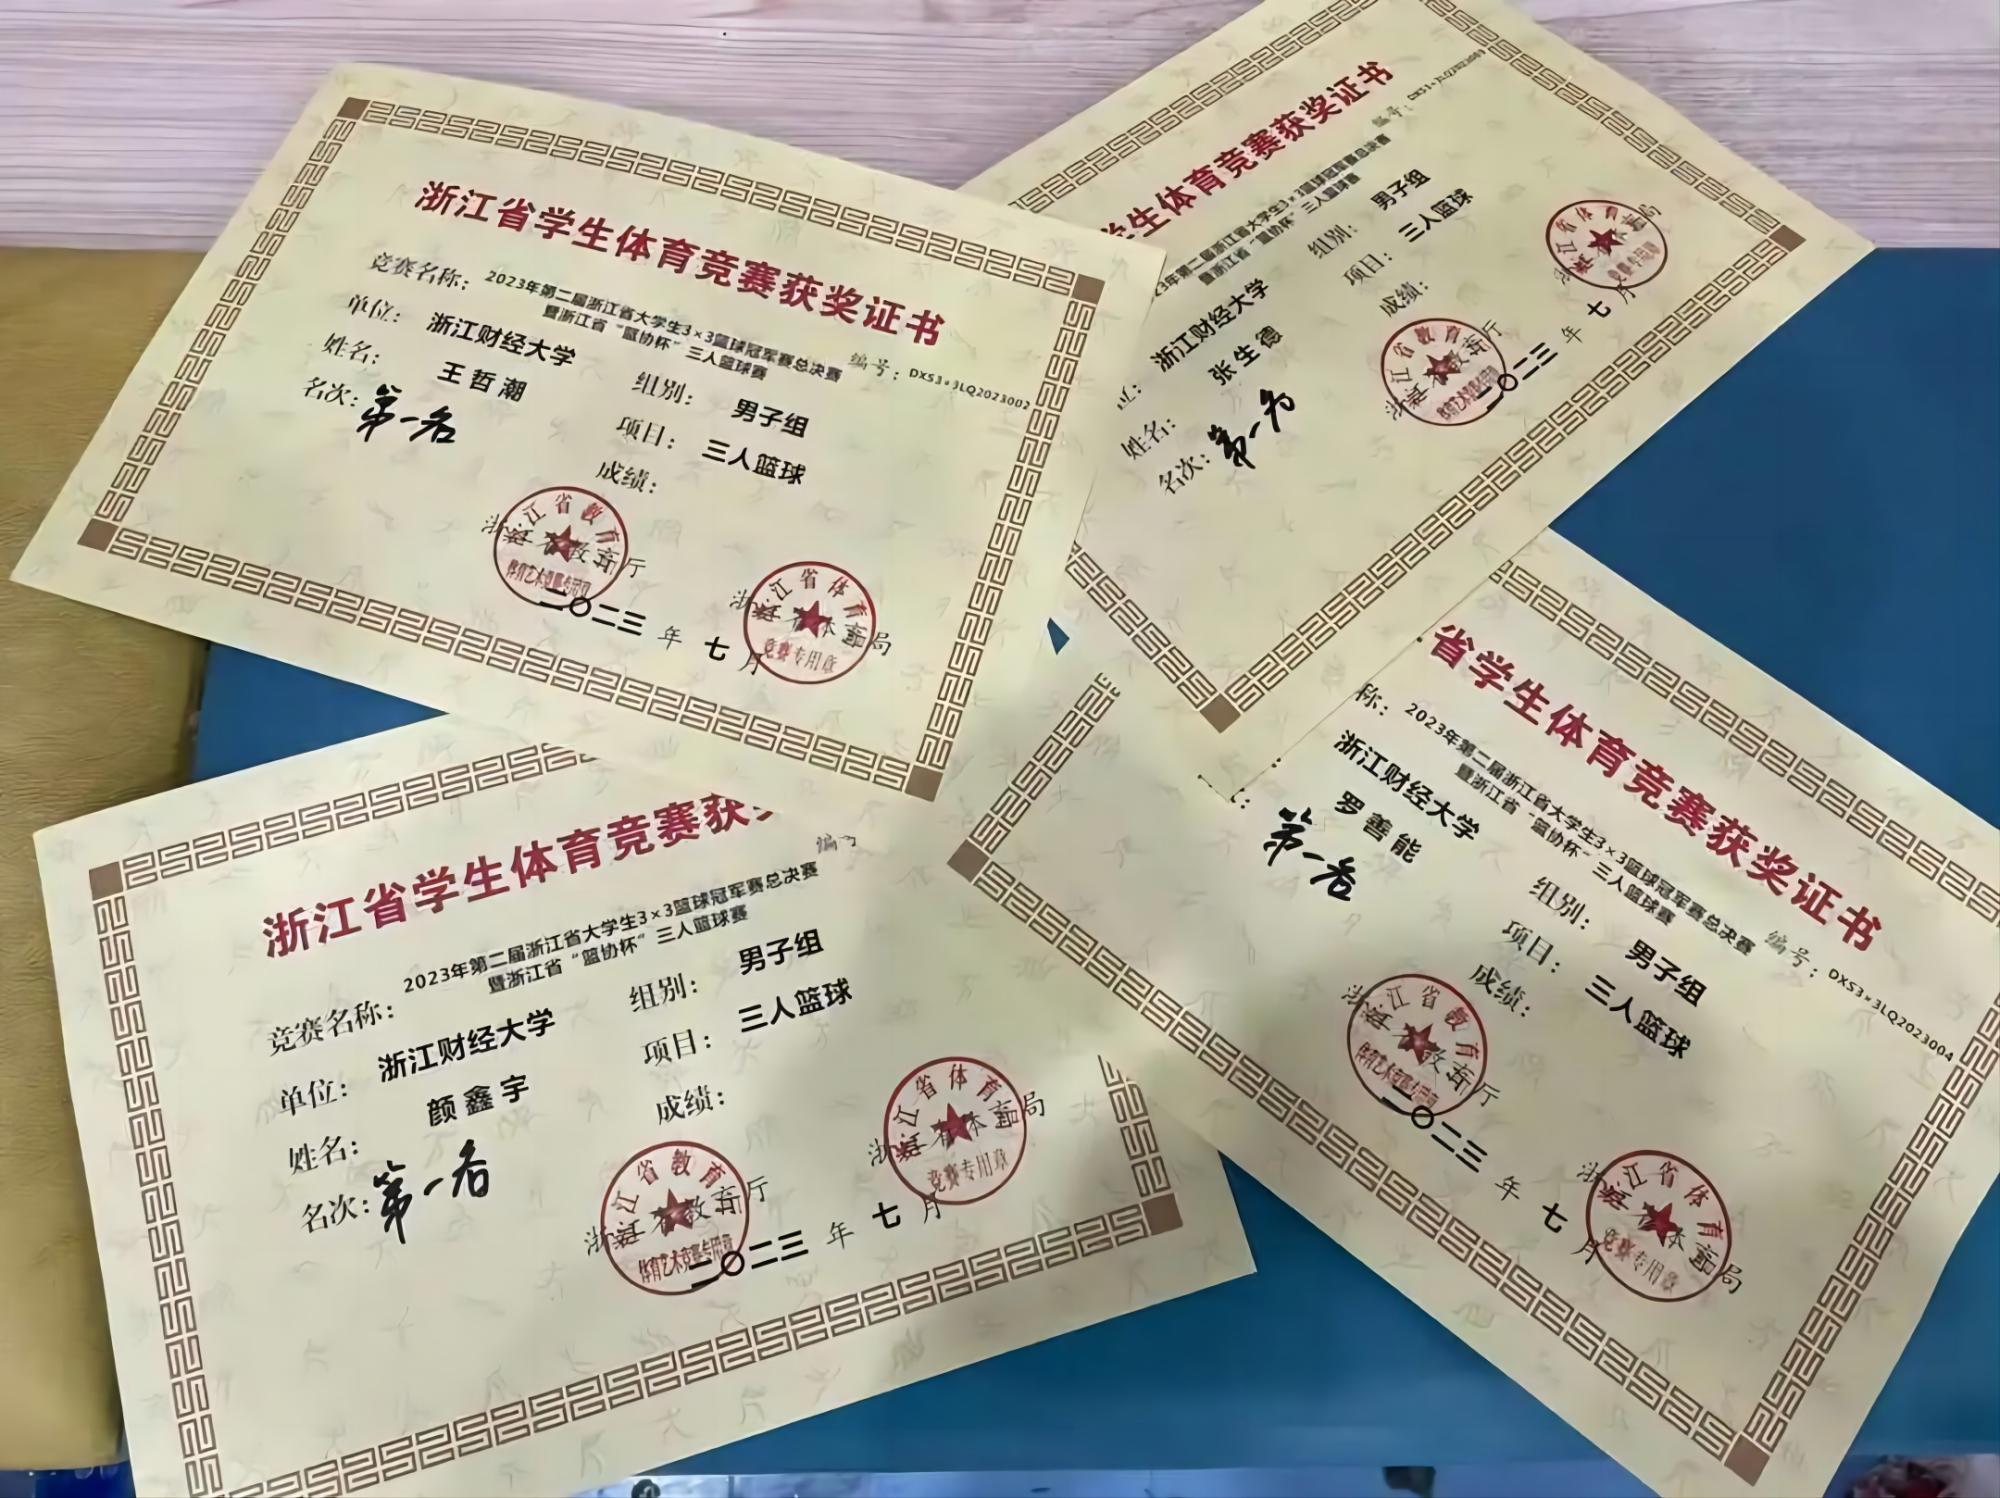 浙江省学生体育竞赛获奖证书
编号：DXS3×3LQ2023002
竞赛名称：2023年第二届浙江省大学生3×3篮球冠军赛总决赛
暨浙江省“篮协杯”三人篮球赛
单位：浙江财经大学
组别：男子组
姓名：王哲潮
项目：三人篮球
名次：第一名
成绩：
浙江省教育厅
浙江省体育局
二〇二三年七月
浙江省教育
体育艺术竞赛专用章
浙江省体育
竞赛专用章
学生体育竞赛获奖证书
编号：
23年第二届浙江省大学生3×3篮球冠军赛总决赛
暨浙江省“篮协杯”三人篮球赛
浙江财经大学
组别：男子组
姓名：张生德
项目：三人篮球
名次：第一名
成绩：
二〇二三年七月
浙江省教育
浙江省体育
浙江省学生体育竞赛获
编号
竞赛名称：2023年第二届浙江省大学生3×3篮球冠军赛总决赛
暨浙江省“篮协杯”三人篮球赛
单位：浙江财经大学
组别：男子组
姓名：颜鑫宇
项目：三人篮球
名次：第一名
成绩：
浙江省教育厅
浙江省体育局
二〇二三年七月
浙江省教育
体育艺术竞赛专用章
浙江省体育
竞赛专用章
省学生体育竞赛获奖证书
编号：DXS3×3LQ2023004
称：2023年第二届浙江省大学生3×3篮球冠军赛总决赛
暨浙江省“篮协杯”三人篮球赛
浙江财经大学
组别：男子组
罗善能
项目：三人篮球
第一名
成绩：
浙江省教育厅
浙江省体育局
二〇二三年七月
浙江省教育
体育艺术竞赛专用章
浙江省体育
竞赛专用章